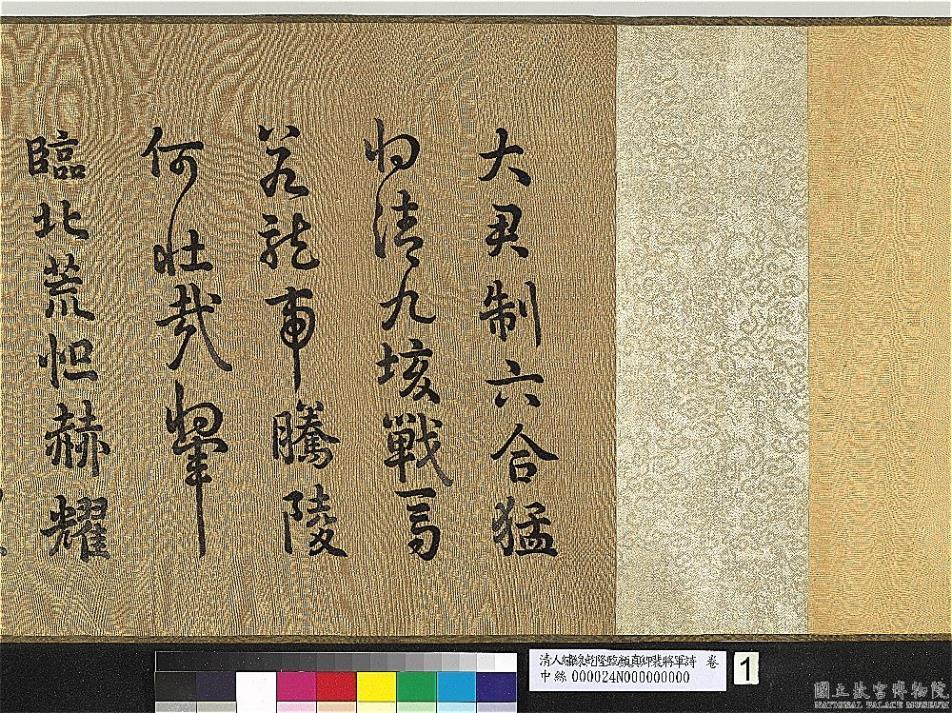 大君制六合猛
將清九垓戰馬
若龍虎騰陵
何壯哉將軍
臨北荒烜赫耀
清人緙絲乾隆臨顏真卿裴將軍詩 卷
中絲 000024N000000000
1
國立故宮博物院
NATIONAL PALACE MUSEUM